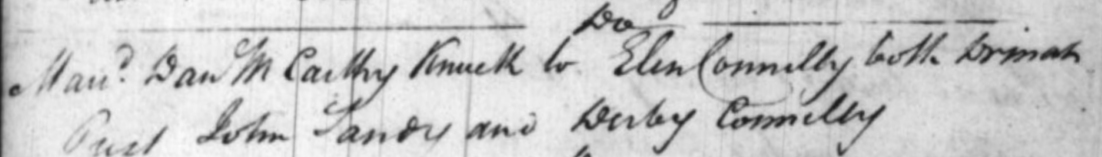 Do
Mard. Danl McCarthy Knuck to Elen Connelly both Drinah
Prest John Landy and Derby Connelly